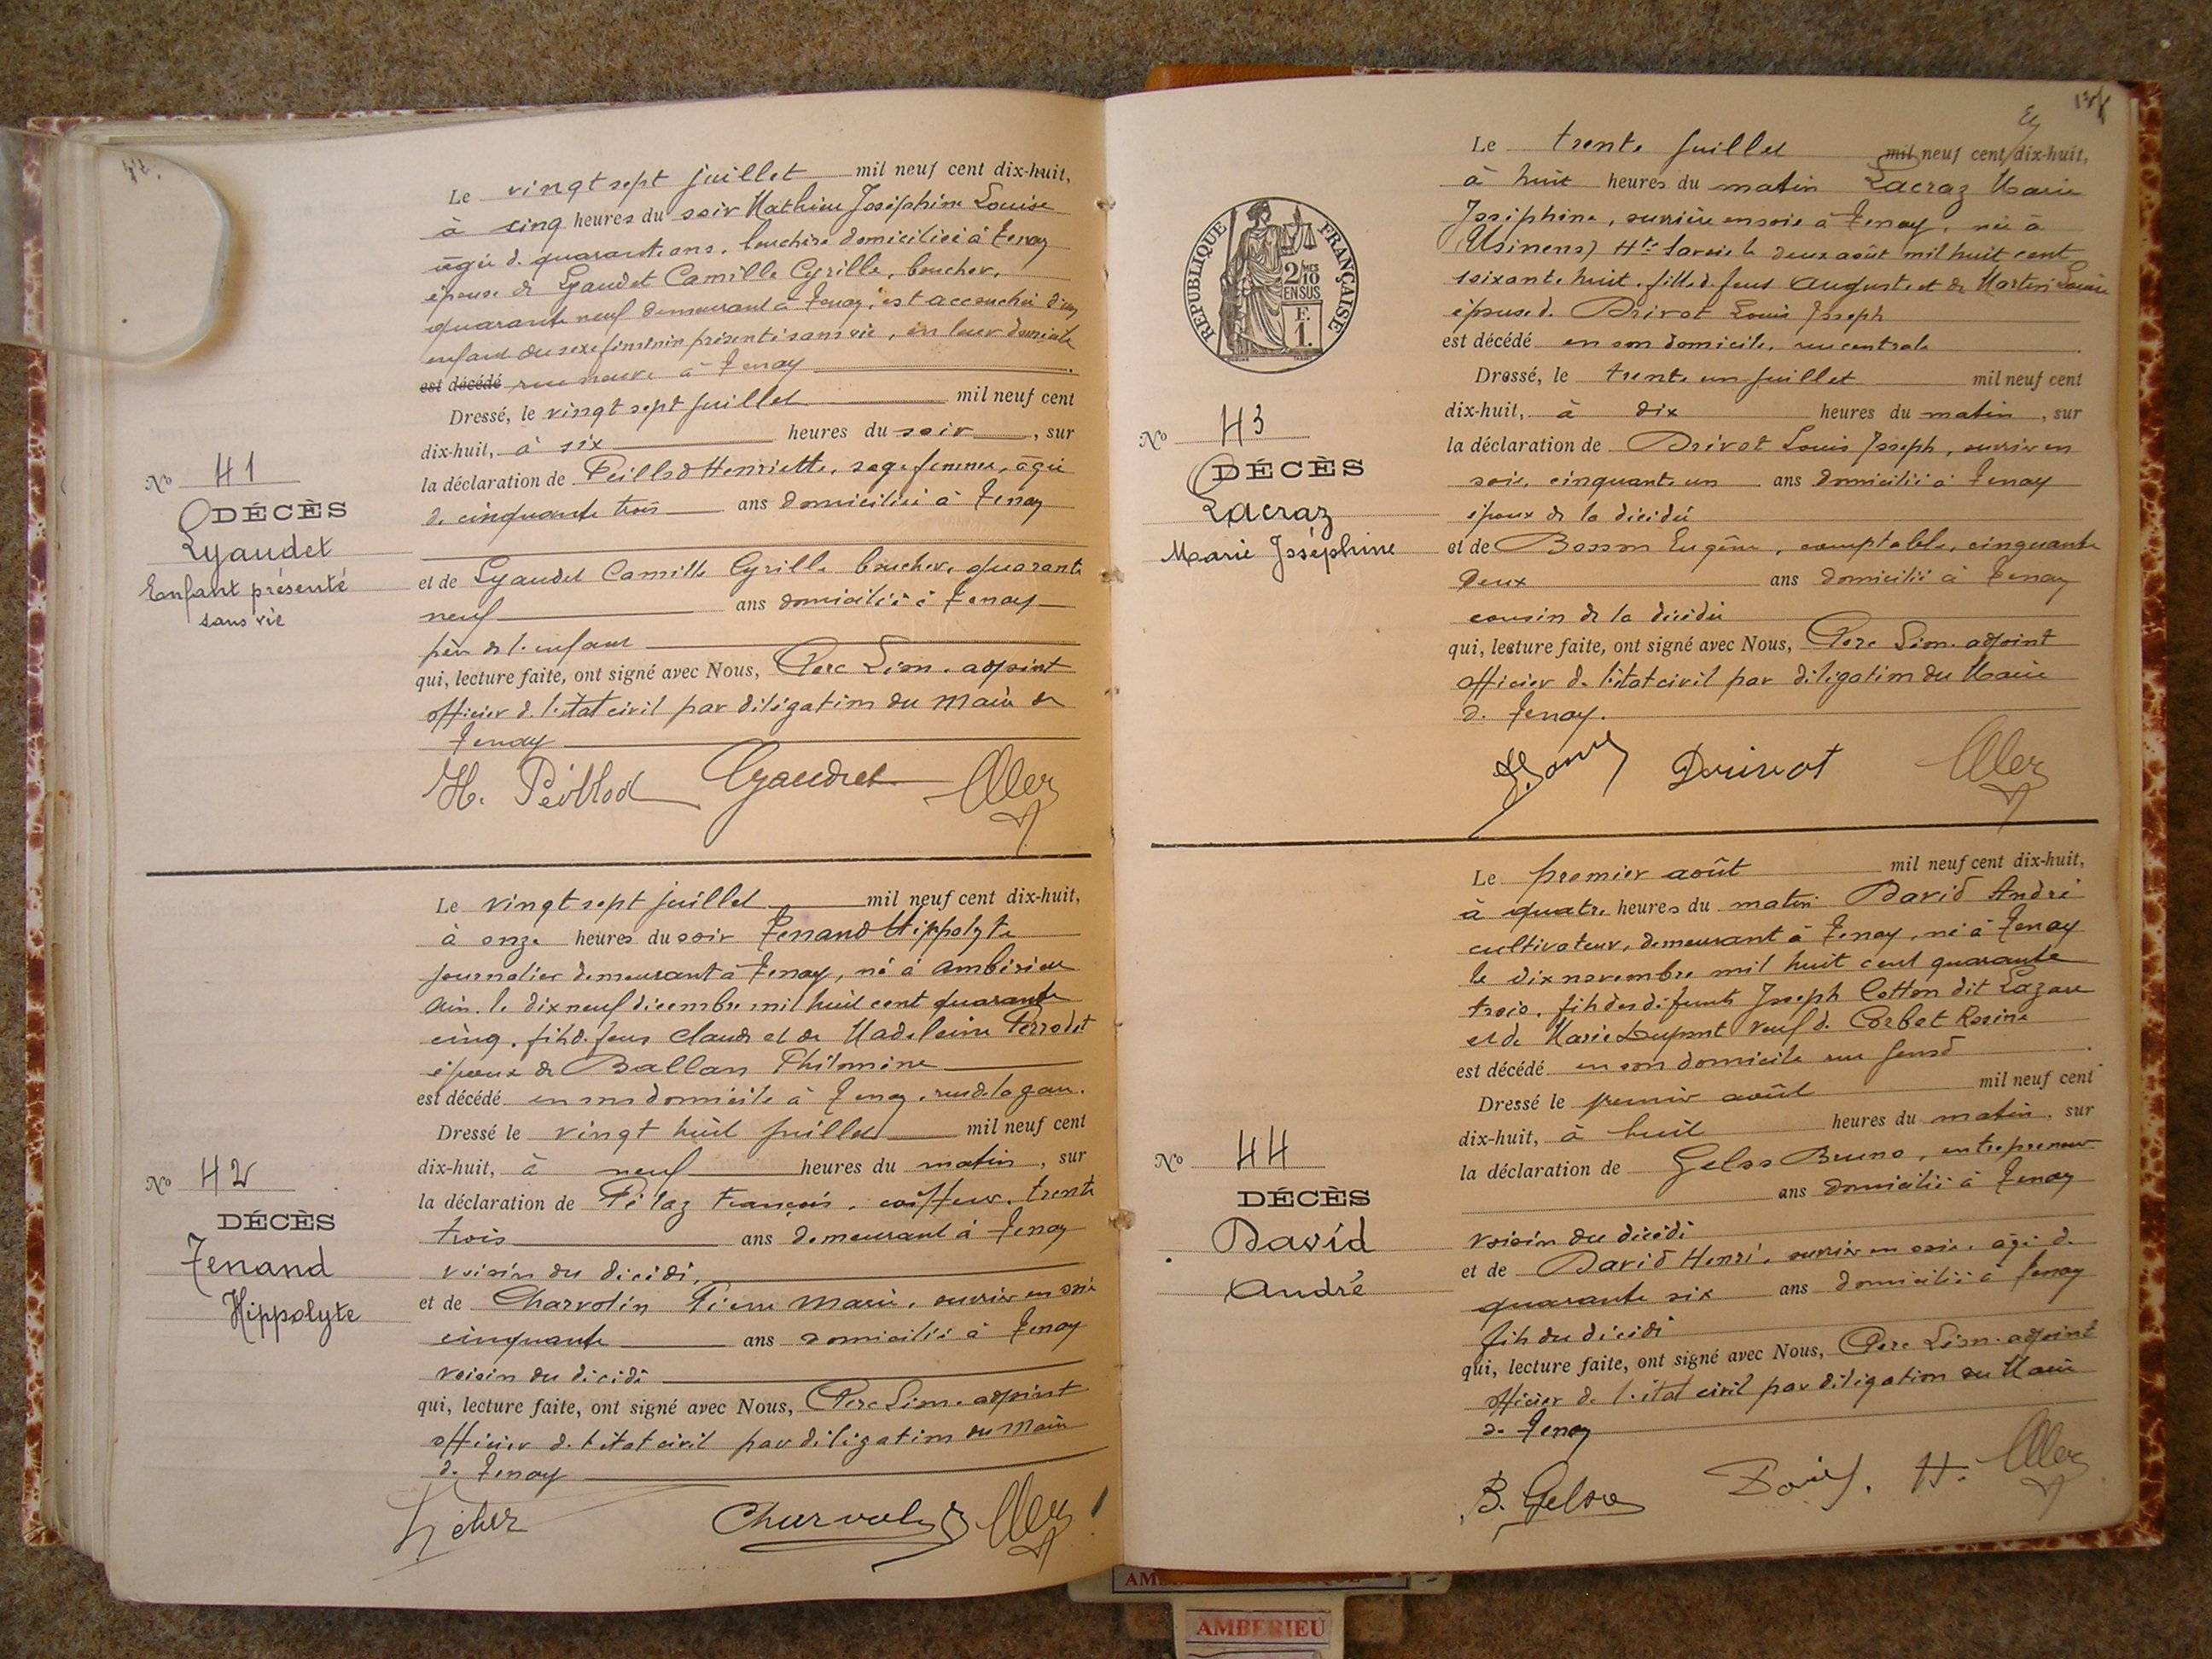 Le vingt sept juillet mil neuf cent dix-huit,
à cinq heures du soir Mathieu Joséphine Louise
âgée de quarante ans, bouchère domiciliée à Tenay
épouse de Lyaudet Camille Cyrille, boucher,
quarante neuf demeurant à Tenay, est accouchée d'un
enfant du sexe féminin présenté sans vie, en leur domicile
est décédé rue neuve à Tenay
Dressé, le vingt sept juillet mil neuf cent
dix-huit, à six heures du soir, sur
la déclaration de Peillod Henriette, sage femme, âgée
de cinquante trois ans domiciliée à Tenay
et de Lyaudet Camille Cyrille boucher, quarante
neuf ans domicilié à Tenay
père de l'enfant
qui, lecture faite, ont signé avec Nous, Léon. adjoint
officier de l'état civil par délégation du Maire de
Tenay
H. Peillod Lyaudet
No 41
DÉCÈS
Lyaudet
Enfant présenté
sans vie
Le vingt sept juillet mil neuf cent dix-huit,
à onze heures du soir Tenand Hippolyte
journalier demeurant à Tenay, né à Ambérieu
Ain. le dix neuf décembre mil huit cent quarante
cinq, fils de feus Claude et de Madeleine Perrodet
époux de Ballan Philomine
est décédé en son domicile à Tenay, rue de la gare.
Dressé le vingt huit juillet mil neuf cent
dix-huit, à neuf heures du matin, sur
la déclaration de François, coiffeur, trente
trois ans demeurant à Tenay
voisin du décédé,
et de Charvolin Pierre Marie, ouvrier en soie
cinquante ans domicilié à Tenay
voisin du décédé
qui, lecture faite, ont signé avec Nous, Léon. adjoint
officier de l'état civil par délégation du Maire
de Tenay
No 42
DÉCÈS
Tenand
Hippolyte
Le trente juillet mil neuf cent dix-huit,
à huit heures du matin Lacraz Marie
Joséphine, ouvrière en soie à Tenay, née à
Usinens) Hte Savoie le deux août mil huit cent
soixante huit, fille de feus Auguste et de Martin Louise
épouse de Drivot Louis Joseph
est décédé en son domicile, rue centrale
Dressé, le trente un juillet mil neuf cent
dix-huit, à dix heures du matin, sur
la déclaration de Drivot Louis Joseph, ouvrier en
soie, cinquante un ans domicilié à Tenay
époux de la décédée
et de Bosson Eugène, comptable, cinquante
deux ans domicilié à Tenay
cousin de la décédée
qui, lecture faite, ont signé avec Nous, Léon. adjoint
officier de l'état civil par délégation du Maire
de Tenay.
Drivot
RÉPUBLIQUE FRANÇAISE
2/10 MES
EN SUS
F.
1.
No 43
DÉCÈS
Lacraz
Marie Joséphine
Le premier août mil neuf cent dix-huit,
à quatre heures du matin David André
cultivateur, demeurant à Tenay, né à Tenay
le dix novembre mil huit cent quarante
trois, fils des défunts Joseph Cotton dit Lazare
et de Marie Dupont veuf de Corbet Rosine
est décédé en son domicile rue
Dressé le premier août mil neuf cent
dix-huit, à huit heures du matin, sur
la déclaration de Gelso Bruno, entrepreneur
ans domicilié à Tenay
voisin du décédé
et de David Henri, ouvrier en soie, âgé de
quarante six ans domicilié à Tenay
fils du décédé
qui, lecture faite, ont signé avec Nous, Léon. adjoint
officier de l'état civil par délégation du Maire
de Tenay
B. Gelso David. H.
No 44
DÉCÈS
David
André
AMBERIEU